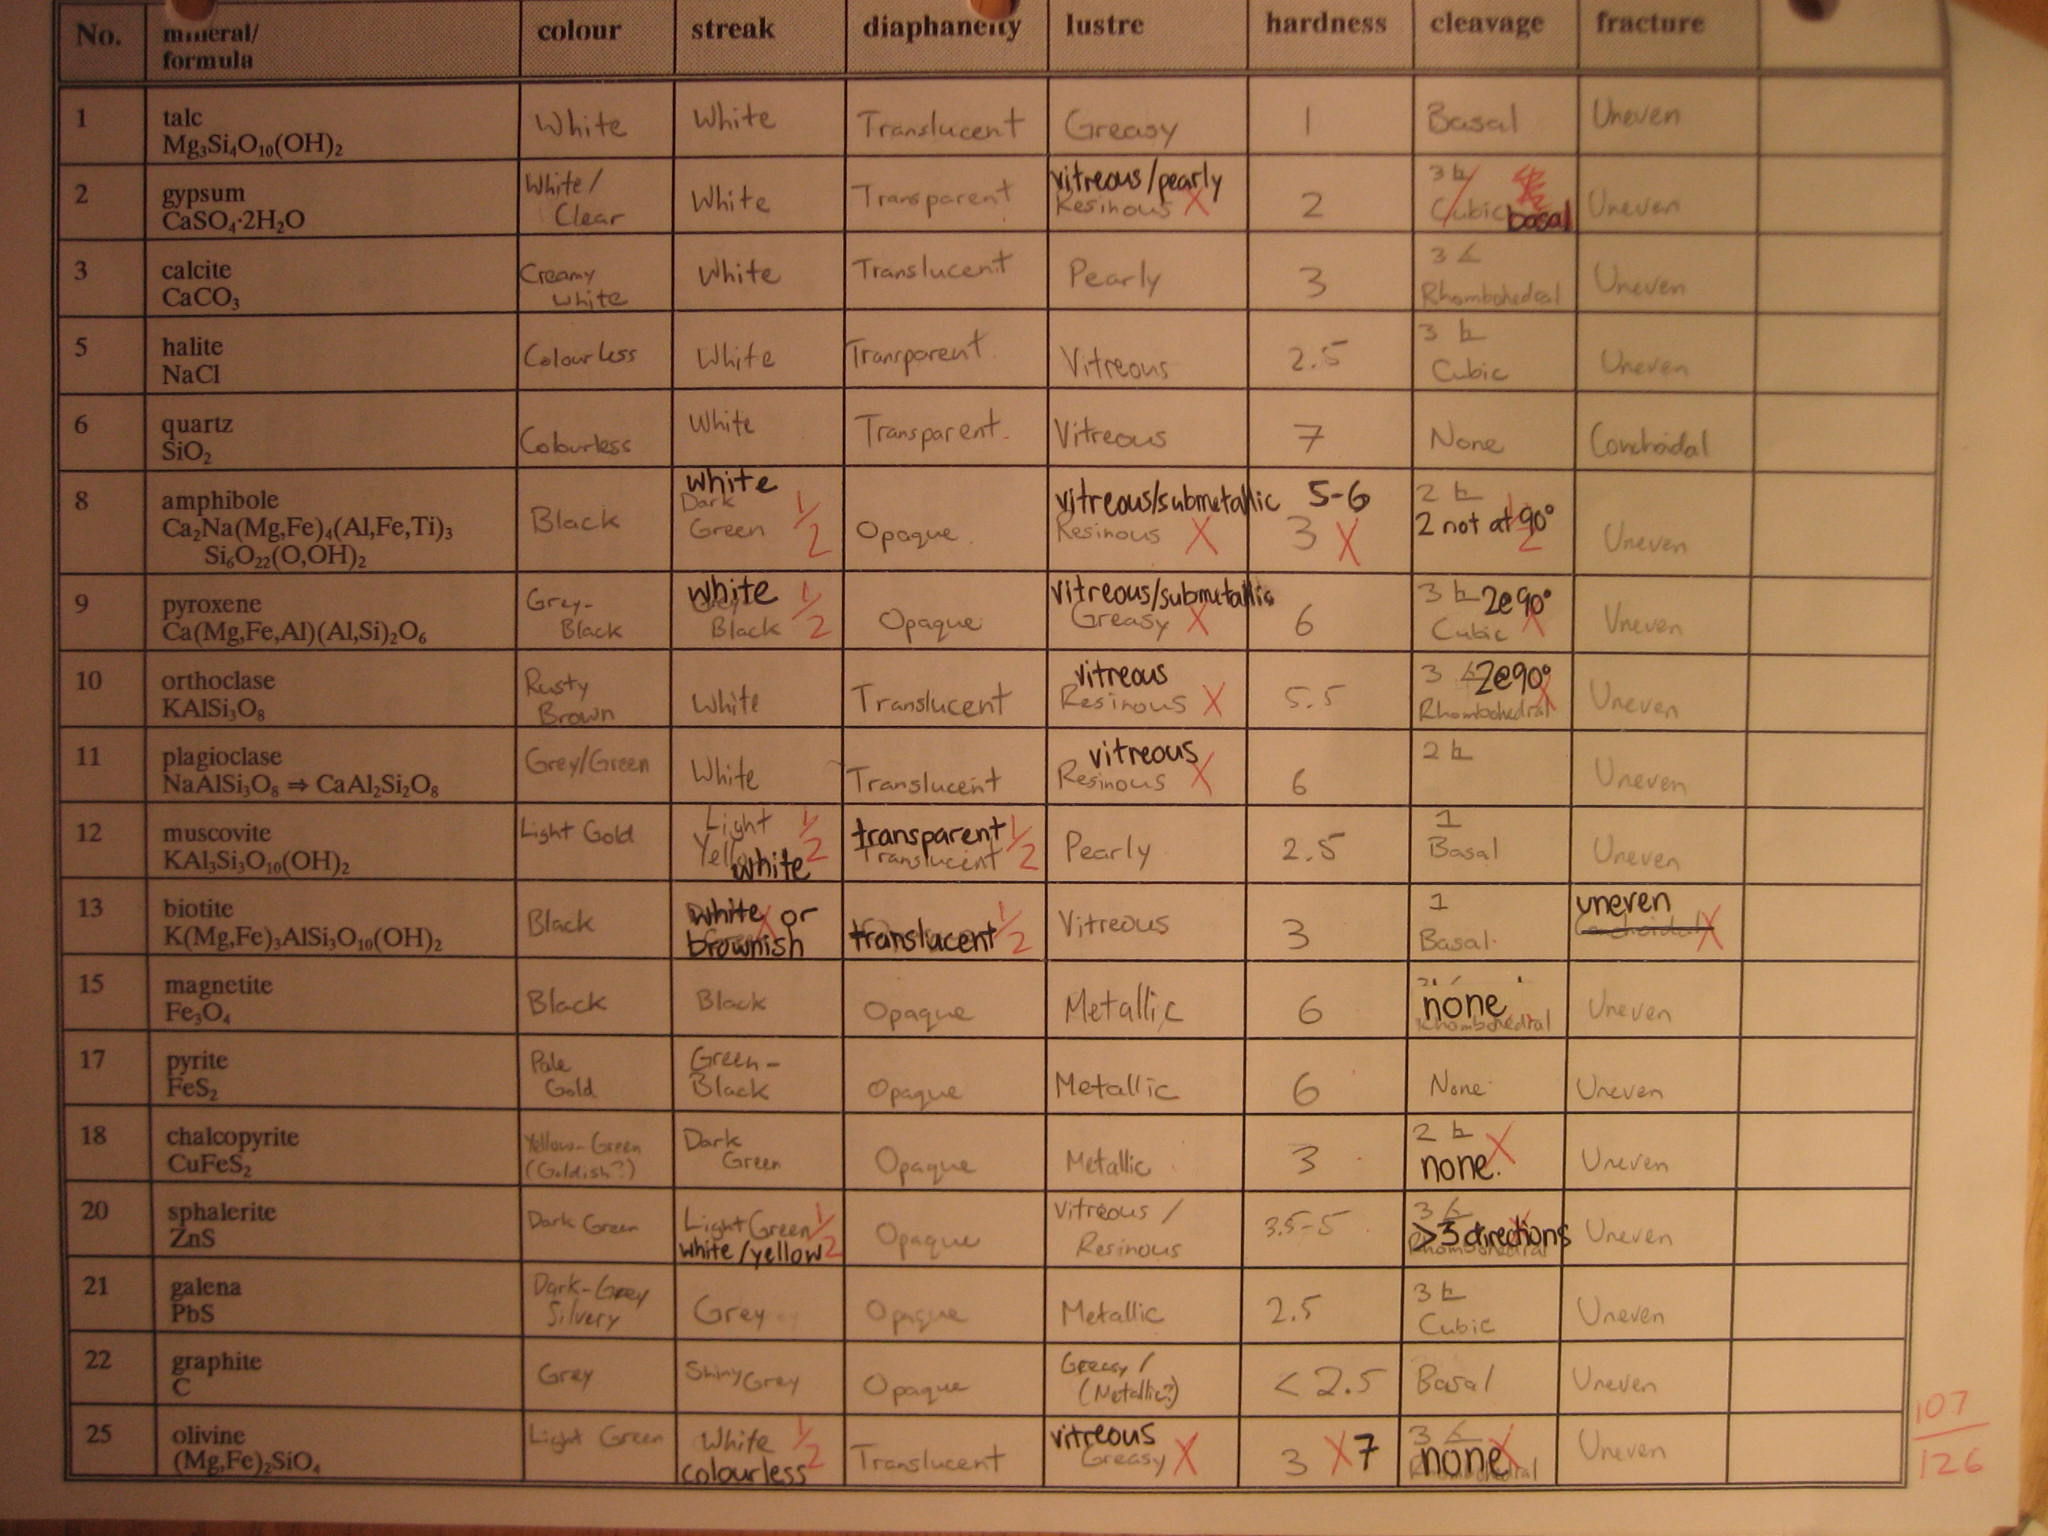 No. mineral/ colour streak diaphaneity lustre hardness cleavage fracture
formula
1 talc White White Translucent Greasy 1 Basal Uneven
Mg₃Si₄O₁₀(OH)₂
2 gypsum White/ White Transparent vitreous/pearly 2 3 Uneven
CaSO₄·2H₂O Clear Resinous X Cubic basal
3 calcite Creamy White Translucent Pearly 3 3 Uneven
CaCO₃ white Rhombohedral
5 halite Colourless White Transparent Vitreous 2.5 3 Uneven
NaCl Cubic
6 quartz Colourless White Transparent. Vitreous 7 None Conchoidal
SiO₂
white vitreous/submetallic 5-6 2
8 amphibole Black Dark 1/2 Opaque Resinous X 3 X 2 not at 90° Uneven
Ca₂Na(Mg,Fe)₄(Al,Fe,Ti)₃ Green
Si₆O₂₂(O,OH)₂
9 pyroxene Grey- white 1/2 Opaque vitreous/submetallic 6 3 2@90° Uneven
Ca(Mg,Fe,Al)(Al,Si)₂O₆ Black Black Greasy X Cubic X
10 orthoclase Rusty White Translucent vitreous 5.5 3 2@90° Uneven
KAlSi₃O₈ Brown Resinous X Rhombohedral X
11 plagioclase Grey/Green White Translucent vitreous 6 2 Uneven
NaAlSi₃O₈ ⇒ CaAl₂Si₂O₈ Resinous X
12 muscovite Light Gold Light 1/2 transparent 1/2 Pearly 2.5 1 Uneven
KAl₃Si₃O₁₀(OH)₂ Yellow white Translucent Basal
13 biotite Black white X or translucent 1/2 Vitreous 3 1 uneven
K(Mg,Fe)₃AlSi₃O₁₀(OH)₂ brownish Basal Conchoidal X
15 magnetite Black Black Opaque Metallic 6 none Uneven
Fe₃O₄ Rhombohedral
17 pyrite Pale Green- Opaque Metallic 6 None Uneven
FeS₂ Gold Black
18 chalcopyrite Yellow-Green Dark Opaque Metallic 3 2 X Uneven
CuFeS₂ (Goldish?) Green none.
20 sphalerite Dark Green Light Green 1/2 Opaque Vitreous/ 3.5-5 3 >3 directions Uneven
ZnS white/yellow Resinous Rhombohedral
21 galena Dark-Grey Grey Opaque Metallic 2.5 3 Uneven
PbS Silvery Cubic
22 graphite Grey Shiny Grey Opaque Greasy/ <2.5 Basal Uneven
C (Metallic?)
25 olivine Light Green White 1/2 Translucent vitreous 3 X 7 3 none X Uneven
(Mg,Fe)₂SiO₄ colourless Greasy X Rhombohedral
107
126